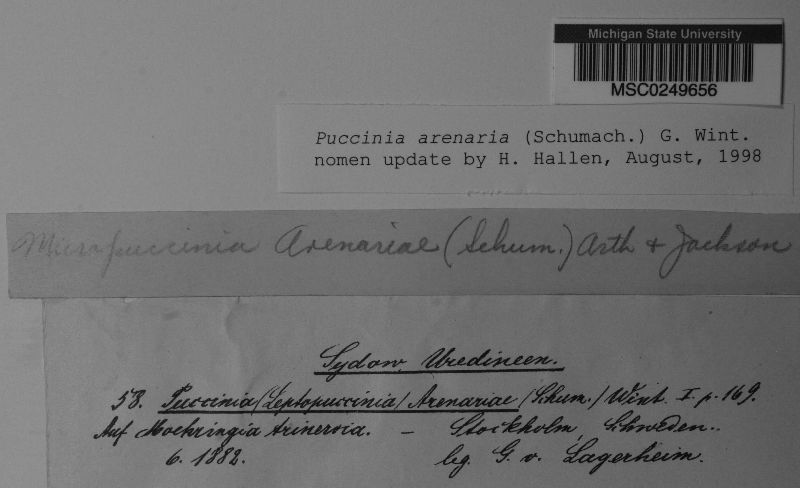 Michigan State University
MSC0249656
Puccinia arenaria (Schumach.) G. Wint.
nomen update by H. Hallen, August, 1998
Micropuccinia Arenariae (Schum.) Arth & Jackson
Sydow, Uredineen.
58. Puccinia (Leptopuccinia) Arenariae (Schum.) Wint. I. p. 169.
Auf Moehringia trinervia. — Stockholm, Schweden.
6. 1882. leg. G. v. Lagerheim.